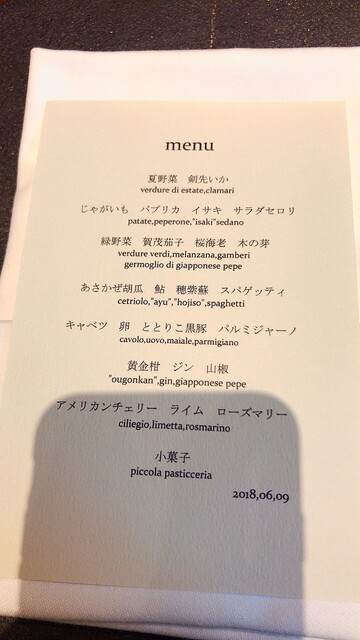 menu
夏野菜　剣先いか
verdure di estate,clamari
じゃがいも　パプリカ　イサキ　サラダセロリ
patate,peperone,"isaki"sedano
緑野菜　賀茂茄子　桜海老　木の芽
verdure verdi,melanzana,gamberi
germoglio di giapponese pepe
あさかぜ胡瓜　鮎　穂紫蘇　スパゲッティ
cetriolo,"ayu","hojiso",spaghetti
キャベツ　卵　ととりこ黒豚　パルミジャーノ
cavolo,uovo,maiale,parmigiano
黄金柑　ジン　山椒
"ougonkan",gin,giapponese pepe
アメリカンチェリー　ライム　ローズマリー
ciliegio,limetta,rosmarino
小菓子
piccola pasticceria
2018,06,09